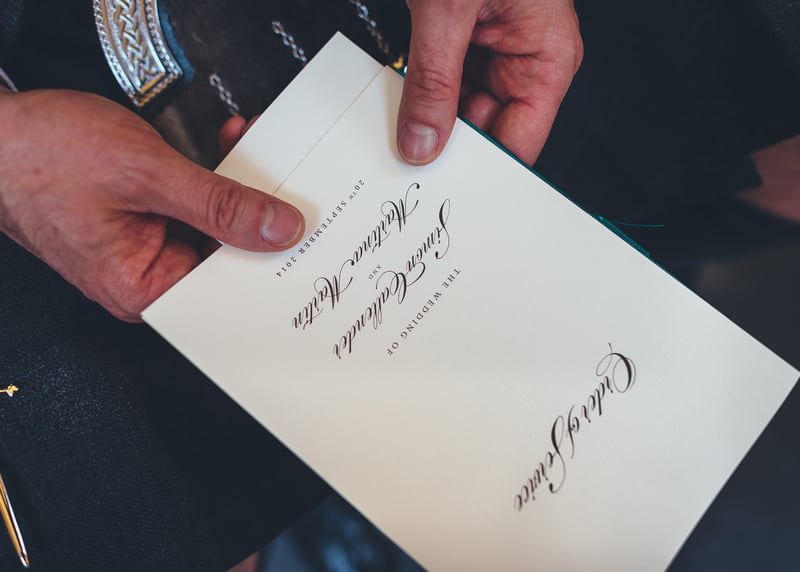 Order of Service
THE WEDDING OF
Simon Callender
AND
Martina Martin
20TH SEPTEMBER 2014